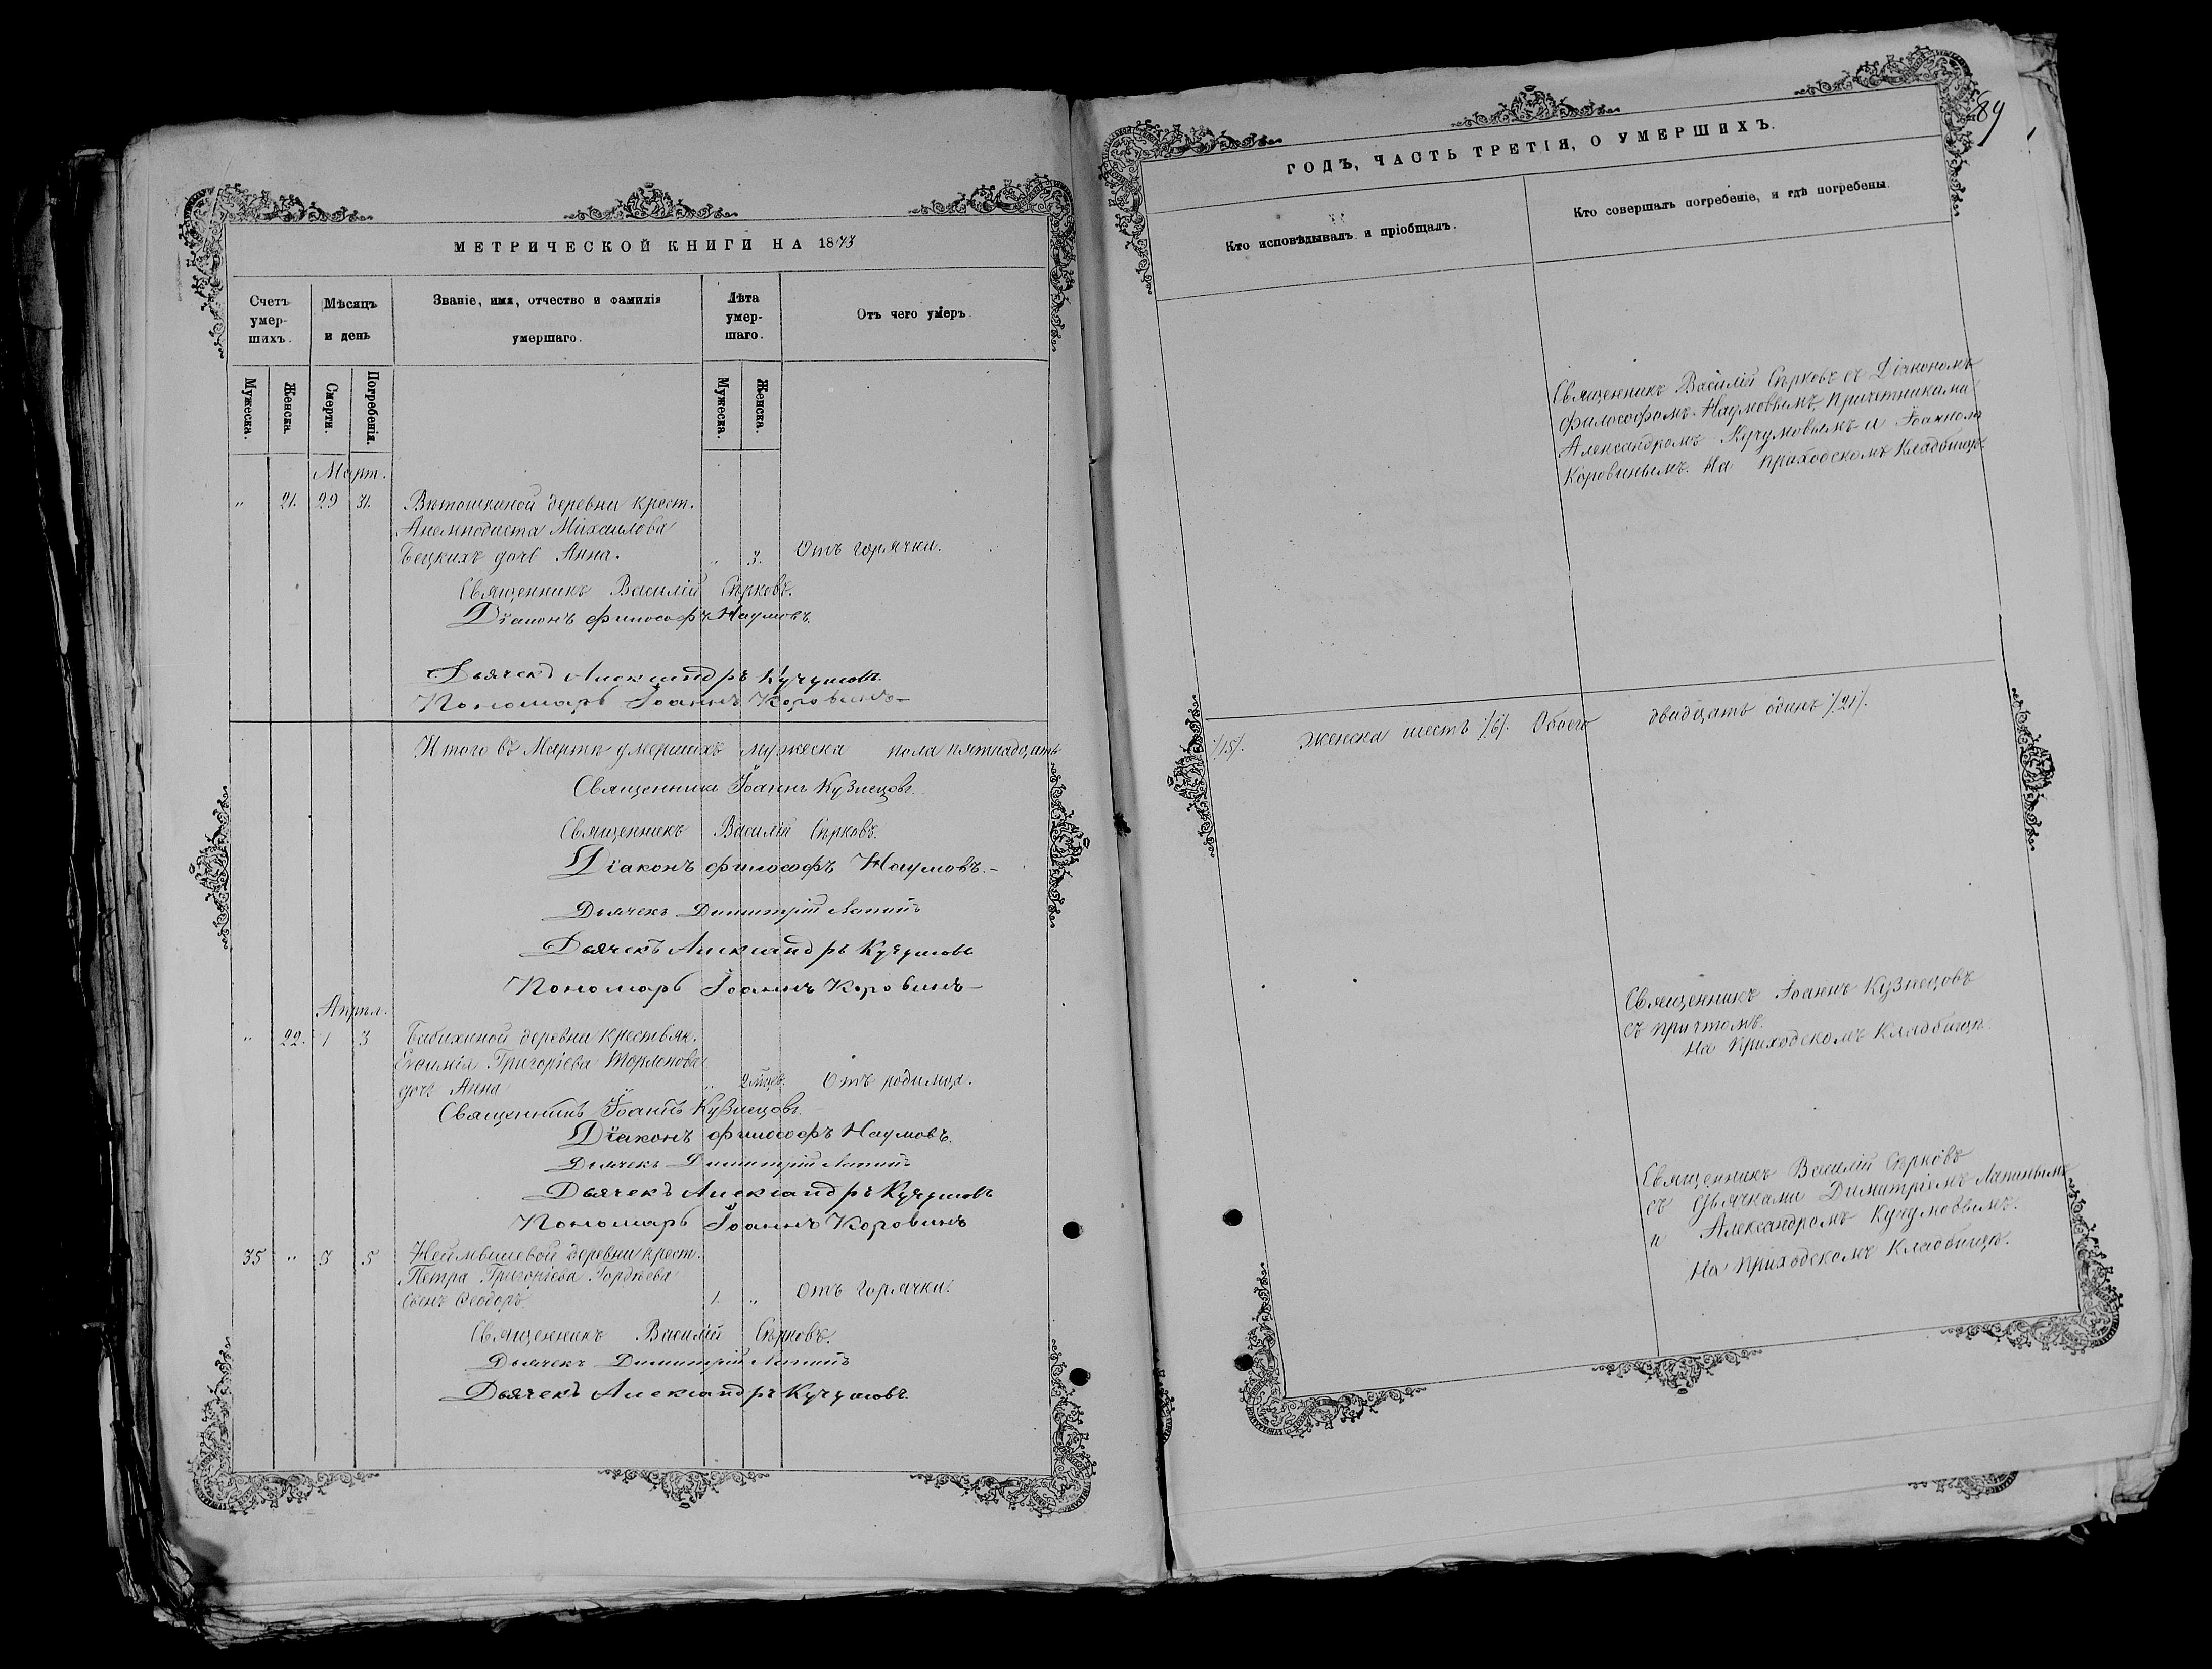 МЕТРИЧЕСКОЙ КНИГИ НА 1873
Счетъ умер-шихъ.
Мѣсяцъ и день
Званіе, имя, отчество и фамилія умершаго.
Лѣта умер-шаго.
Отъ чего умеръ
Мужеска.
Женска.
Смерти.
Погребенія.
Мужеска.
Женска.
Март.
" 21. 29 31. Ватошкиной деревни крест.
Михаилова
дочь Анна. " 3. Отъ горячки.
Священникъ Василій Сѣрковъ.
Діаконъ философъ Наумовъ.
Дьячекъ Александръ Кучумовъ.
Пономарь Іоаннъ Коровинъ
Итого въ Мартѣ умершихъ мужеска пола пятнадцать
Священникъ Іоаннъ Кузнецовъ.
Священникъ Василій Сѣрковъ.
Діаконъ философъ Наумовъ.
Дьячекъ Димитрій Лапинъ
Дьячекъ Александръ Кучумовъ
Пономарь Іоаннъ Коровинъ
Апрѣл.
" 22. 1 3 Бабихиной деревни крестьян.
Григоріева
дочь Анна " 2 мѣсяц. Отъ родимца.
Священникъ Іоаннъ Кузнецовъ.
Діаконъ философъ Наумовъ.
Дьячекъ Димитрій Лапинъ
Дьячекъ Александръ Кучумовъ
Пономарь Іоаннъ Коровинъ
35 " 3 5 деревни крест.
Петра Григоріева Гордѣева
сынъ Ѳеодоръ 1. " Отъ горячки.
Священникъ Василій Сѣрковъ.
Дьячекъ Димитрій Лапинъ
Дьячекъ Александръ Кучумовъ.
89
ГОДЪ, ЧАСТЬ ТРЕТІЯ, О УМЕРШИХЪ.
Кто исповѣдывалъ и пріобщалъ.
Кто совершалъ погребеніе, и гдѣ погребены.
Священникъ Василій Сѣрковъ съ Діакономъ
философомъ Наумовымъ, Причетниками
Александромъ Кучумовымъ и Іоанном
Коровинымъ. На приходскомъ Кладбищѣ.
/15/. Женска шесть /6/. Обоего двадцать одинъ /21/.
Священникъ Іоаннъ Кузнецовъ
съ причтомъ.
На приходскомъ Кладбищѣ.
Священникъ Василій Сѣрковъ
съ Дьячками Димитріемъ Лапинымъ
и Александромъ Кучумовымъ.
На Приходскомъ Кладбищѣ.